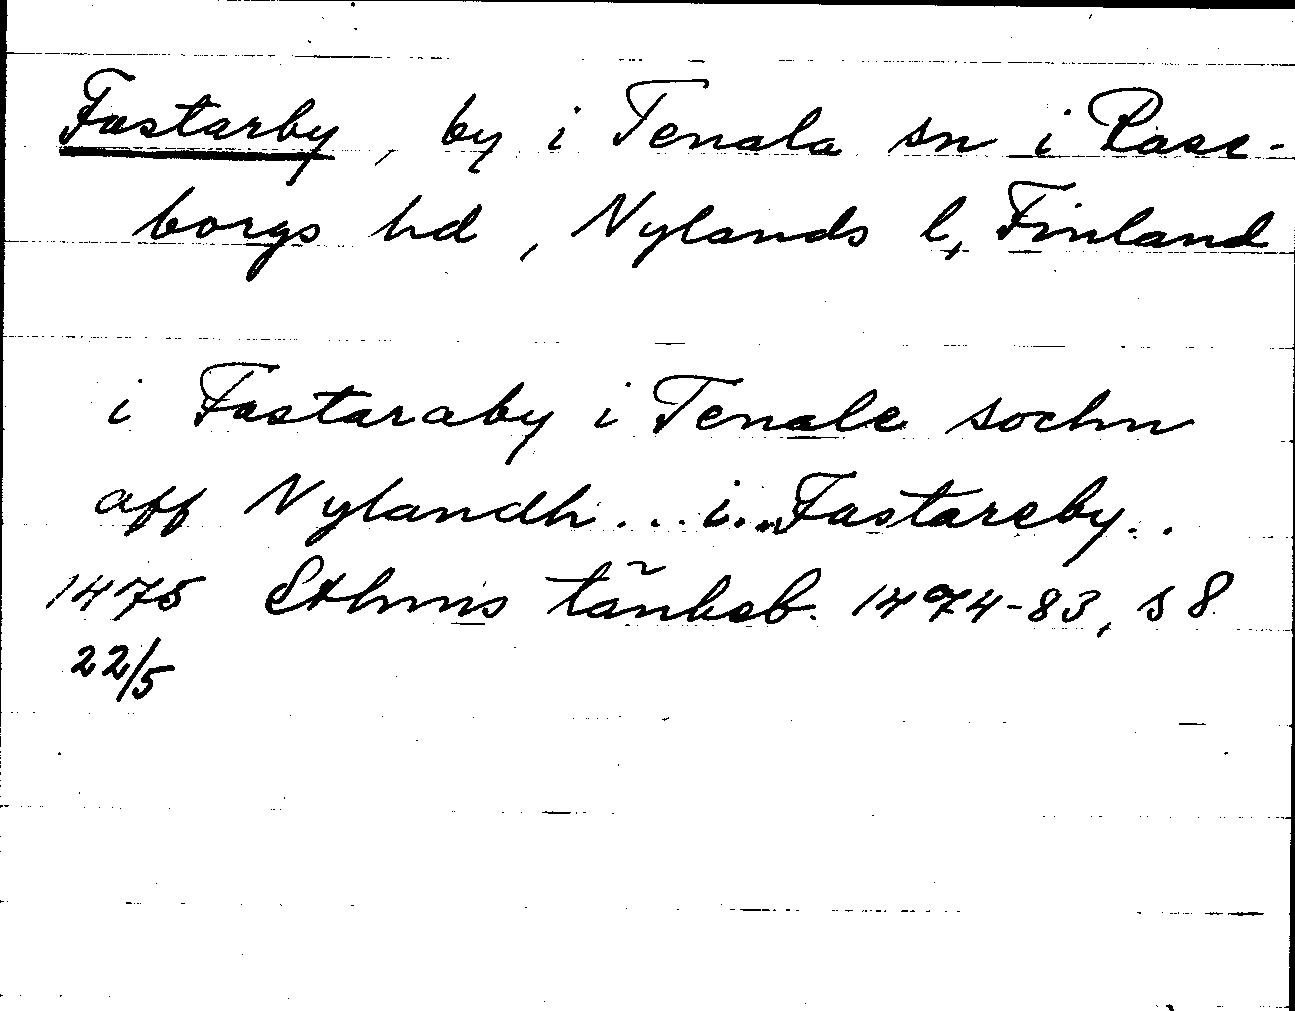 Fastarby, by i Tenala sn i Rase-
borgs hd, Nylands l, Finland
i Fastaraby i Tenale sochn
aff Nylandh... i... Fastareby..
1475 Sthms tänkeb. 1474-83, s 8
22/5